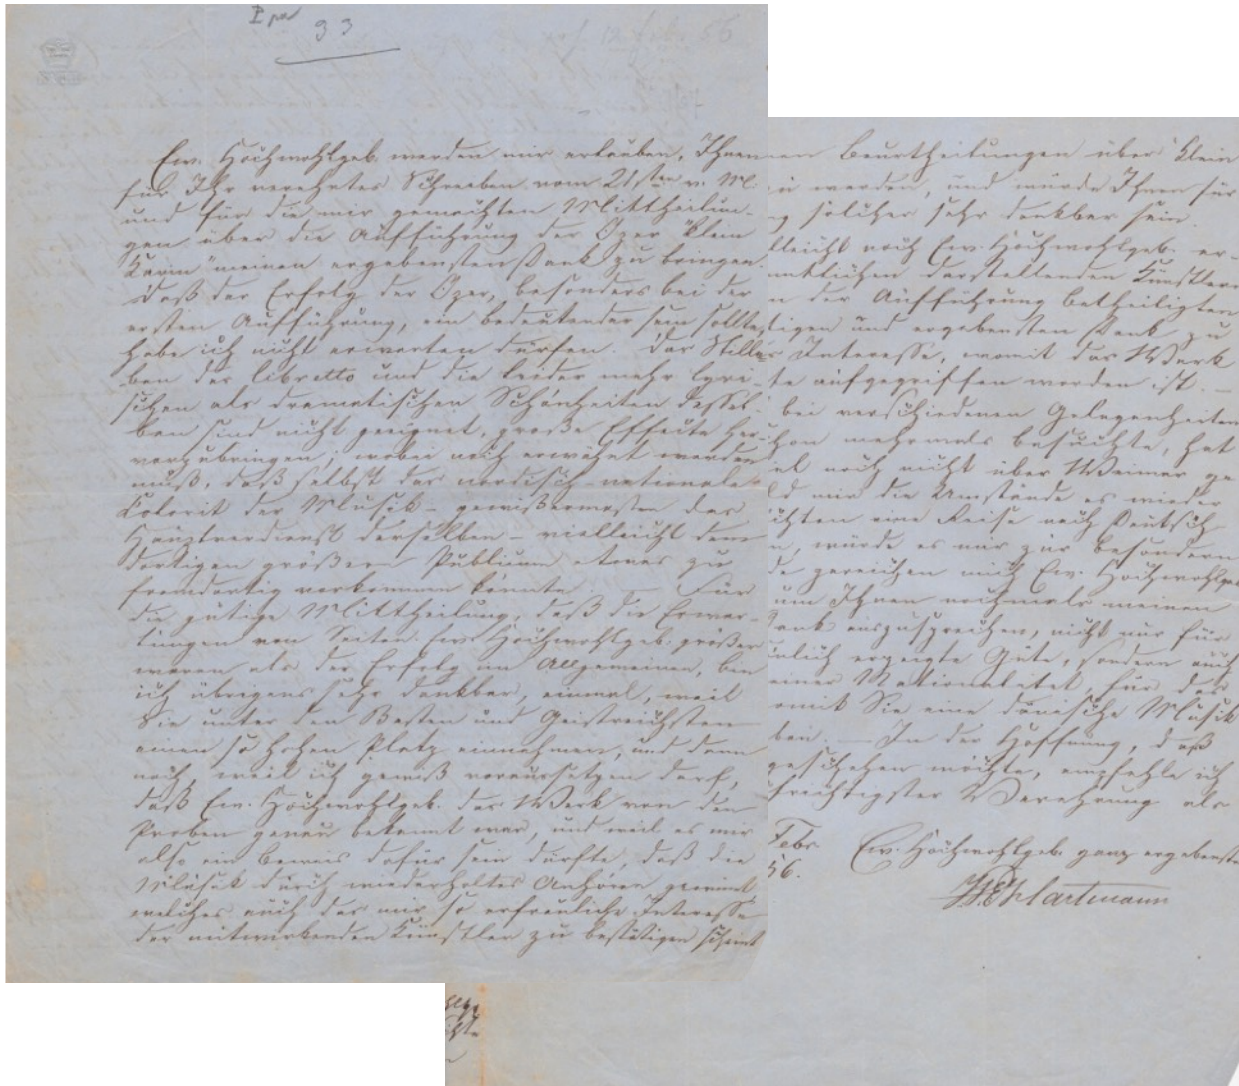 33
Ew. Hochwohlgeb. werden mir erlauben, Ihnen
für Ihr verehrtes Schreiben vom 21sten v. M.
und für die mir gemachten Mittheilun-
gen über die Aufführung der Oper "Klein
Karin" meinen ergebensten Dank zu bringen.
Daß der Erfolg der Oper, besonders bei der
ersten Aufführung, ein bedeutender sein sollte,
habe ich nicht erwarten dürfen. Das Stille
des libretto und die leider mehr lyri-
schen als dramatischen Schönheiten dessel-
ben sind nicht geeignet, große Effecte her-
vorzubringen; wobei noch erwähnt werden
muß, daß selbst das nordisch-nationale
Colorit der Musik – gewißermaßen das
Hauptverdienst derselben – vielleicht dem
dortigen größern Publicum etwas zu
fremdartig vorkommen könnte. Für
die gütige Mittheilung, daß die Erwar-
tungen von Seiten Ew. Hochwohlgeb. größer
waren als der Erfolg im Allgemeinen, bin
ich übrigens sehr dankbar, einmal, weil
Sie unter den Besten und Geistreichsten
einen so hohen Platz einnehmen, und dann
noch, weil ich gewiß voraussetzen darf,
daß Ew. Hochwohlgeb. das Werk von den
Proben genau bekannt war, und weil es mir
also ein Beweis dafür sein dürfte, daß die
Musik durch wiederholtes Anhören gewinnt
welches auch das mir so erfreuliche Interesse
der mitwirkenden Künstler zu bestätigen scheint
Beurtheilungen über Klein
werden, und würde Ihnen für
solcher sehr dankbar sein.
noch Ew. Hochwohlgeb. er-
darstellenden Künstlern
der Aufführung betheiligten
und ergebensten Dank zu
Interesse, womit das Werk
aufgegriffen worden ist. –
bei verschiedenen Gelegenheiten
mehrmals besuchte, hat
noch nicht über Weimar ge
mir die Umstände es wieder
eine Reise nach Deutsch-
würde es mir zur besondern
gereichen mich Ew. Hochwohlgeb.
um Ihnen nochmals meinen
auszusprechen, nicht nur für
erzeigte Güte, sondern auch
Nationalitet, für das
womit Sie eine dänische Musik
– In der Hoffnung, daß
geschehen möchte, empfehle ich
Verehrung als
Febr
56.
Ew. Hochwohlgeb. ganz ergebenster
J.P.E. Hartmann